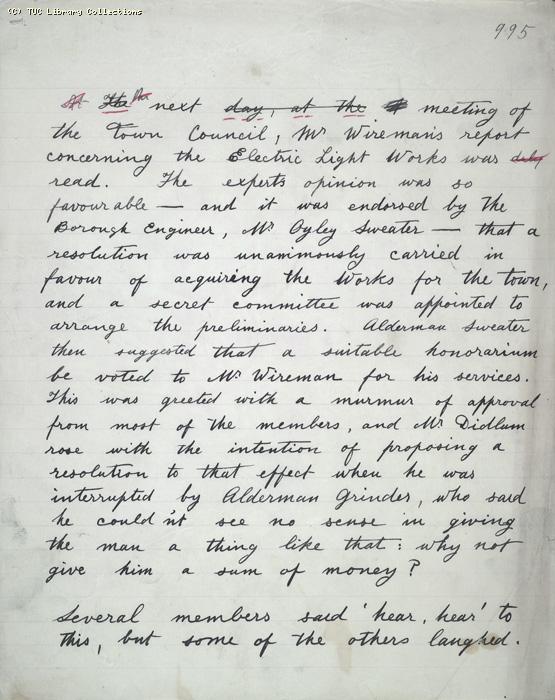 (C) TUC Library Collections
995
At The the next day, at the meeting of
the Town Council, Mr Wireman's report
concerning the Electric Light Works was duly
read. The experts opinion was so
favourable — and it was endorsed by the
Borough Engineer, Mr Oyley Sweater — that a
resolution was unanimously carried in
favour of acquiring the Works for the town,
and a secret committee was appointed to
arrange the preliminaries. Alderman Sweater
then suggested that a suitable honorarium
be voted to Mr Wireman for his services.
This was greeted with a murmur of approval
from most of the members, and Mr Didlum
rose with the intention of proposing a
resolution to that effect when he was
interrupted by Alderman Grinder, who said
he could'nt see no sense in giving
the man a thing like that: why not
give him a sum of money?
Several members said 'hear, hear' to
this, but some of the others laughed.